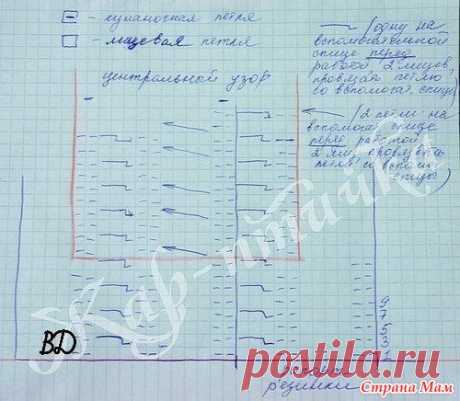 - изнаночная петля
- лицевая петля
центральной узор
(одну на
вспомогательной
спице перед
работой 2 лицев,
провязав петлю
со вспомогат. спицы)
(2 петли на
вспомог спице
перед работой
2 лиц провязать
петли со вспом
спицы)
Жар-птичка
9
7
5
3
1
ВД
резинки
postila.ru
Страна Мам